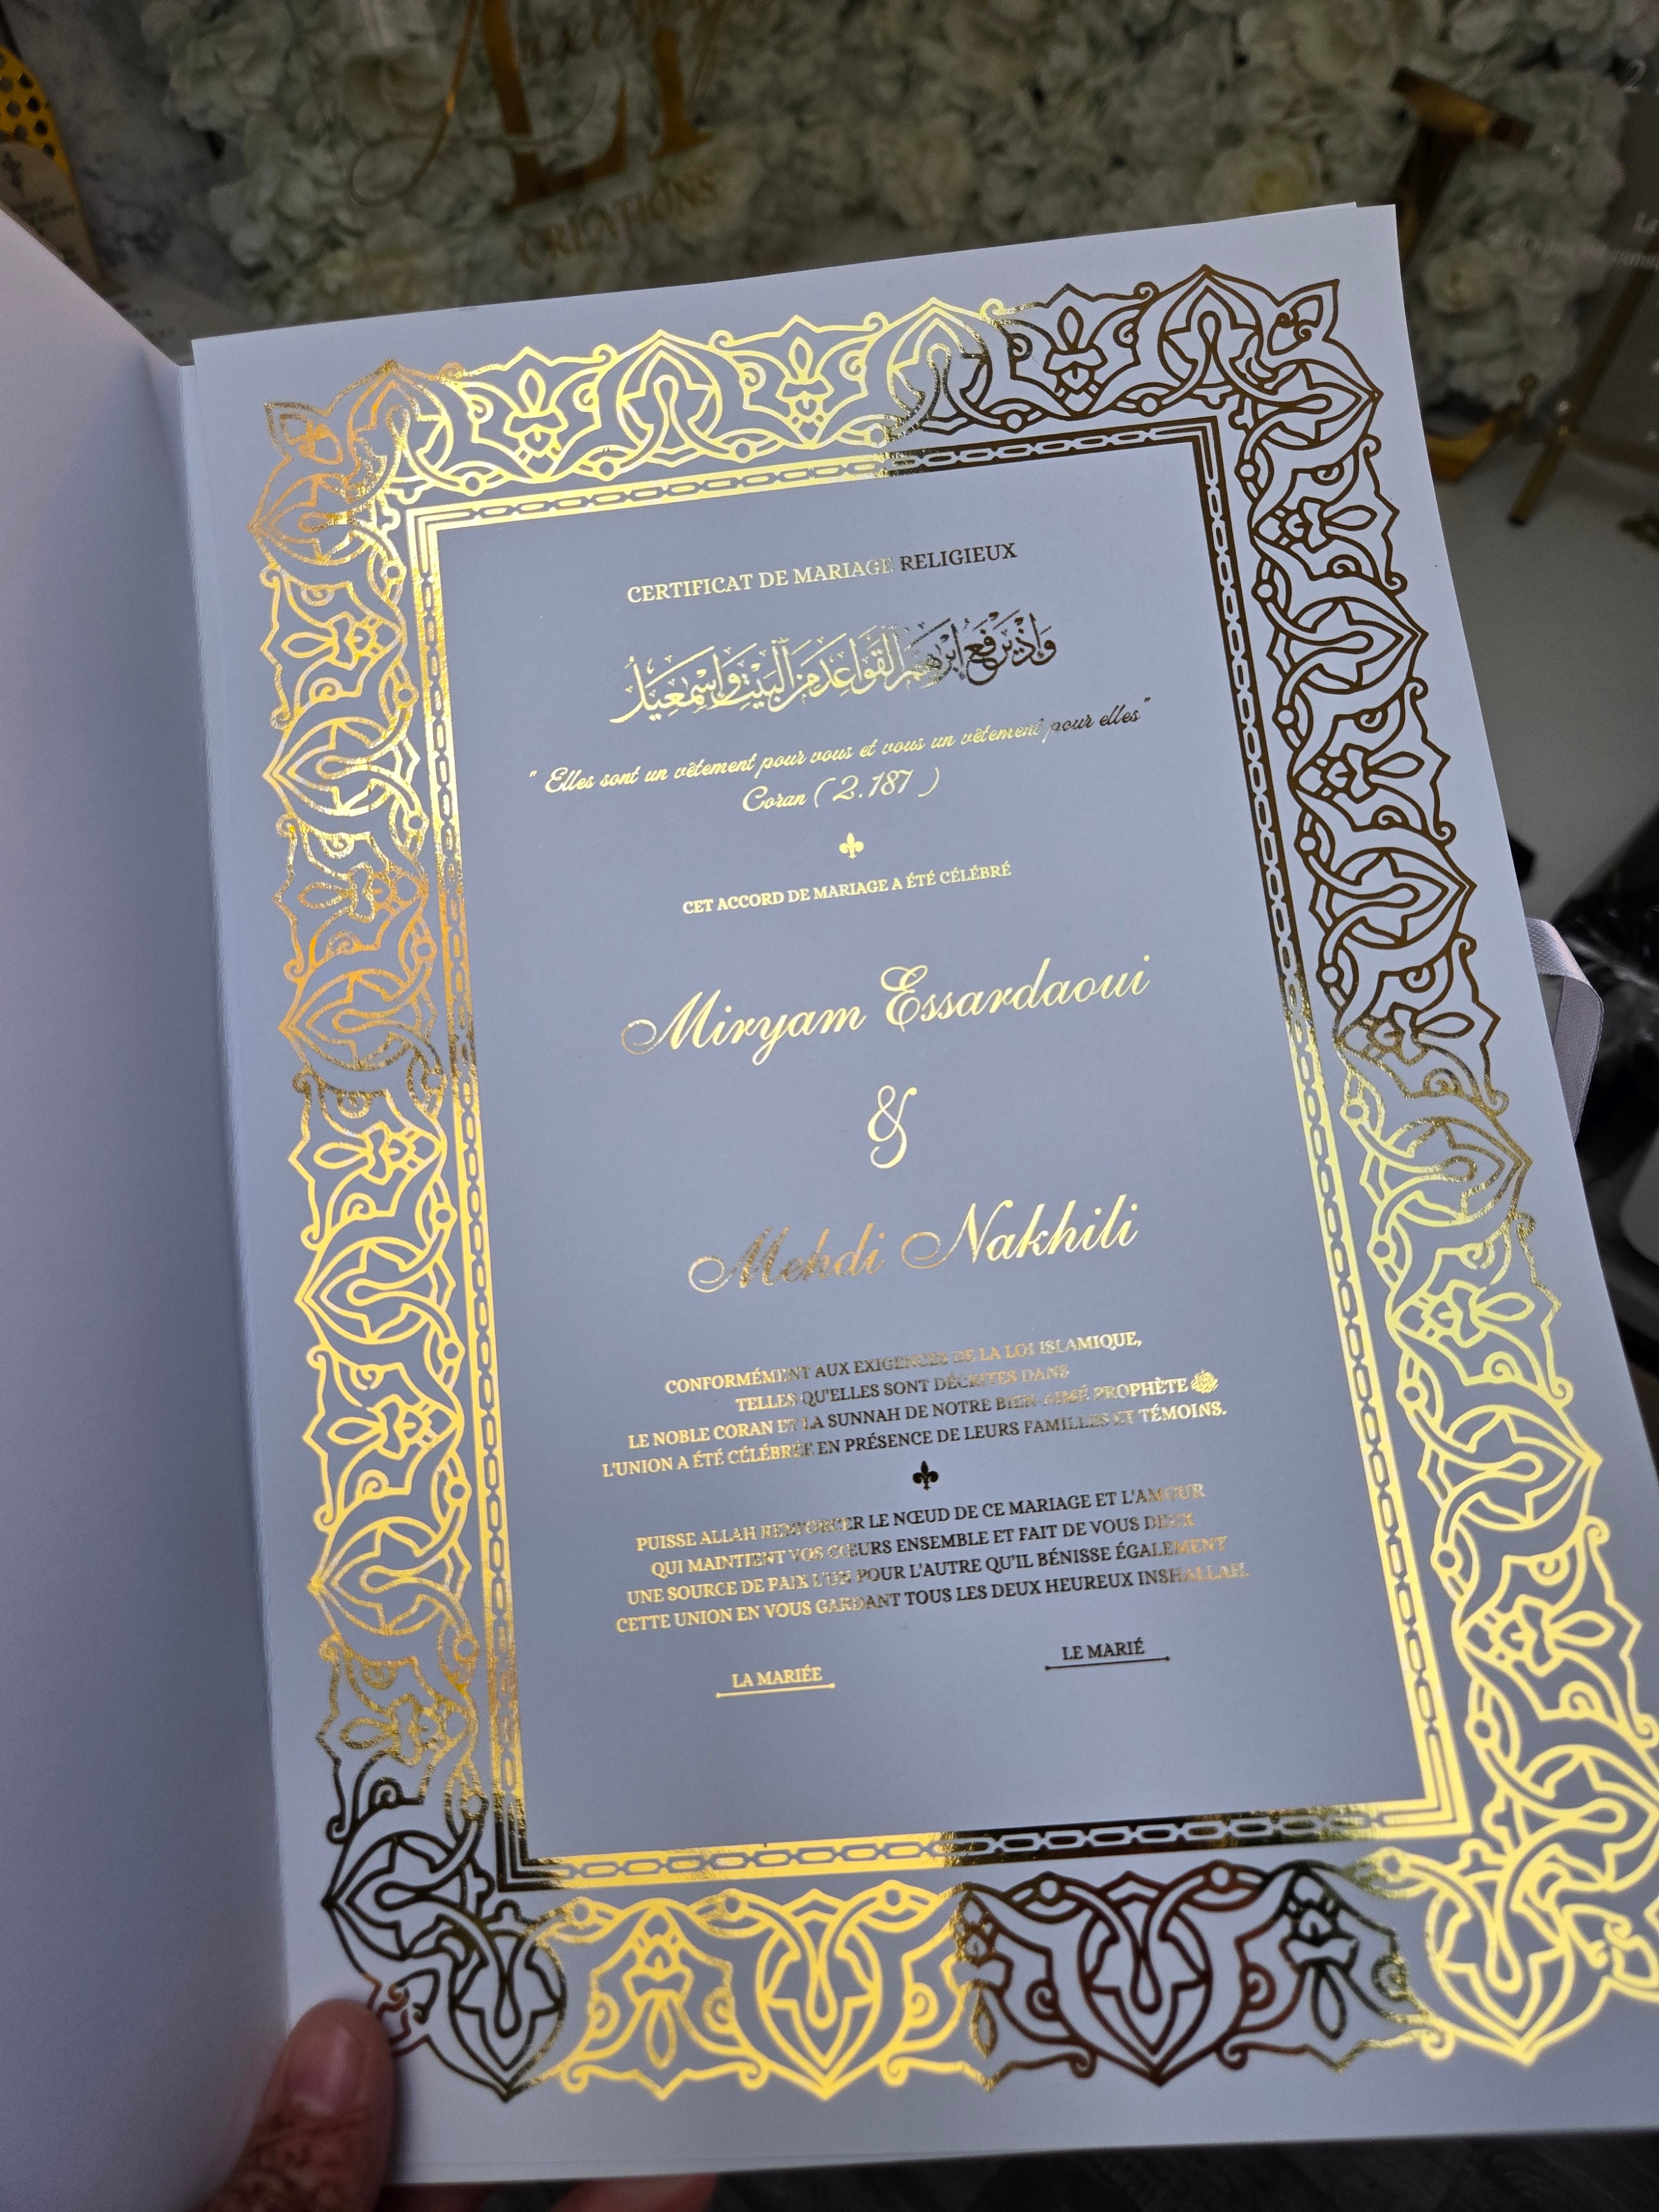 CRÉATIONS
CERTIFICAT DE MARIAGE RELIGIEUX
وَإِذْ يَرْفَعُ إِبْرَاهِيمُ الْقَوَاعِدَ مِنَ الْبَيْتِ وَإِسْمَاعِيلُ
" Elles sont un vêtement pour vous et vous un vêtement pour elles"
Coran ( 2.187 )
CET ACCORD DE MARIAGE A ÉTÉ CÉLÉBRÉ
Miryam Essardaoui
&
Mehdi Nakhili
CONFORMÉMENT AUX EXIGENCES DE LA LOI ISLAMIQUE,
TELLES QU'ELLES SONT DÉCRITES DANS
LE NOBLE CORAN ET LA SUNNAH DE NOTRE BIEN-AIMÉ PROPHÈTE
L'UNION A ÉTÉ CÉLÉBRÉE EN PRÉSENCE DE LEURS FAMILLES ET TÉMOINS.
PUISSE ALLAH RENFORCER LE NŒUD DE CE MARIAGE ET L'AMOUR
QUI MAINTIENT VOS CŒURS ENSEMBLE ET FAIT DE VOUS DEUX
UNE SOURCE DE PAIX L'UN POUR L'AUTRE QU'IL BÉNISSE ÉGALEMENT
CETTE UNION EN VOUS GARDANT TOUS LES DEUX HEUREUX INSHALLAH.
LA MARIÉE
LE MARIÉ